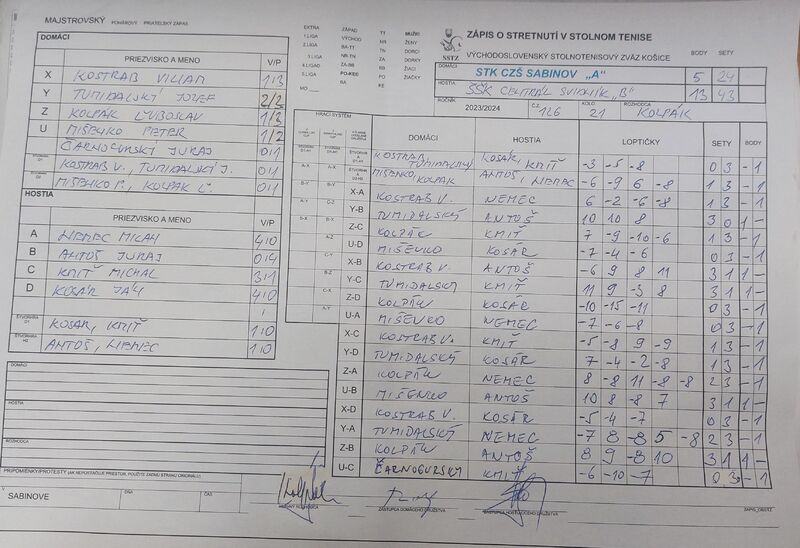 MAJSTROVSKÝ POHÁROVÝ PRIATEĽSKÝ ZÁPAS
DOMÁCI
PRIEZVISKO A MENO V/P
X KOSTRAB VILIAM 1/3
Y TUMIDALSKÝ JOZEF 2/2
Z KOLPÁK ĽUBOSLAV 1/3
U MIŠENKO PETER 1/2
ČARNOGURSKÝ JURAJ 0/1
KOSTRAB V., TUMIDALSKÝ J. 0/1
MIŠENKO P., KOLPÁK Ľ. 0/1
HOSTIA
PRIEZVISKO A MENO V/P
A NEMEC MILAN 4/0
B ANTOŠ JURAJ 0/4
C KMIŤ MICHAL 3/1
D KOSÁR JÁN 4/0
KOSÁR, KMIŤ 1/0
ANTOŠ, NEMEC 1/0
DOMÁCI
HOSTIA
ROZHODCA
PRIPOMIENKY/PROTESTY (AK NEPOSTAČUJE PRIESTOR, POUŽITE ZADNÚ STRANU ORIGINÁLU)
V SABINOVE DŇA ČAS
EXTRA ZÁPAD TT MUŽI
1.LIGA VÝCHOD MI ŽENY
2.LIGA BA-TT TN DORCI
3.LIGA NR-TN ZA DORKY
4.LIGA ZA-BB BB ŽIACI
5.LIGA PO-KE KE ŽIAČKY
MO
SSTZ
ZÁPIS O STRETNUTÍ V STOLNOM TENISE
VÝCHODOSLOVENSKÝ STOLNOTENISOVÝ ZVÄZ KOŠICE BODY SETY
DOMÁCI STK CZŠ SABINOV „A" 5 24
HOSTIA ŠŠK CENTRÁL SVIDNÍK „B" 13 43
ROČNÍK 2023/2024 Č.Z. 126 KOLO 21 ROZHODCA KOLPÁK
HRACÍ SYSTÉM
DOMÁCI HOSTIA LOPTIČKY SETY BODY
KOSTRAB, TUMIDALSKÝ KOSÁR, KMIŤ -3 -5 -8 0 3 - 1
MIŠENKO, KOLPÁK ANTOŠ, NEMEC -6 -9 6 -8 1 3 - 1
X-A KOSTRAB V. NEMEC 6 -2 -6 -8 1 3 - 1
Y-B TUMIDALSKÝ ANTOŠ 10 10 8 3 0 1 -
Z-C KOLPÁK KMIŤ 7 -9 -10 -6 1 3 - 1
U-D MIŠENKO KOSÁR -7 -4 -6 0 3 - 1
X-B KOSTRAB V. ANTOŠ -6 9 8 11 3 1 1 -
Y-C TUMIDALSKÝ KMIŤ 11 9 -3 8 3 1 1 -
Z-D KOLPÁK KOSÁR -10 -15 -11 0 3 - 1
U-A MIŠENKO NEMEC -7 -6 -8 0 3 - 1
X-C KOSTRAB V. KMIŤ -5 -8 9 -9 1 3 - 1
Y-D TUMIDALSKÝ KOSÁR 7 -4 -2 -8 1 3 - 1
Z-A KOLPÁK NEMEC 8 -8 11 -8 -8 2 3 - 1
U-B MIŠENKO ANTOŠ 10 8 -8 7 3 1 1 -
X-D KOSTRAB V. KOSÁR -5 -4 -7 0 3 - 1
Y-A TUMIDALSKÝ NEMEC -7 8 -8 5 -8 2 3 - 1
Z-B KOLPÁK ANTOŠ 8 9 -8 10 3 1 1 -
U-C ČARNOGURSKÝ KMIŤ -6 -10 -7 0 3 - 1
HLAVNÝ ROZHODCA ZÁSTUPCA DOMÁCEHO DRUŽSTVA ZÁSTUPCA HOSŤUJÚCEHO DRUŽSTVA